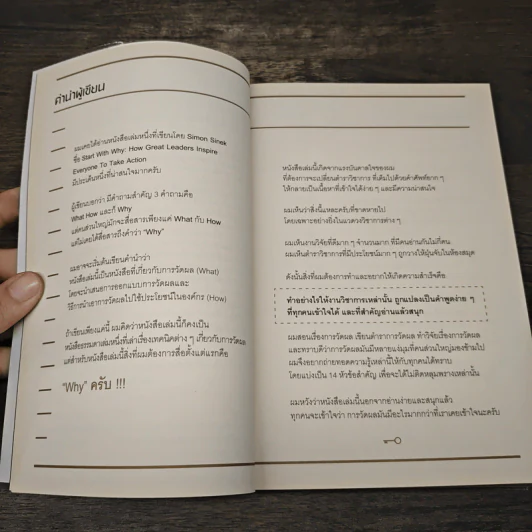 คำนำผู้เขียน
ผมเคยได้อ่านหนังสือเล่มหนึ่งที่เขียนโดย Simon Sinek
ชื่อ Start With Why: How Great Leaders Inspire
Everyone To Take Action
มีประเด็นหนึ่งที่น่าสนใจมากครับ
ผู้เขียนบอกว่า มีคำถามสำคัญ 3 คำถามคือ
What How และก็ Why
แต่คนส่วนใหญ่มักจะสื่อสารเพียงแค่ What กับ How
แต่ไม่เคยได้สื่อสารถึงคำว่า "Why"
ผมอาจจะเริ่มต้นเขียนคำนำว่า
หนังสือเล่มนี้เป็นหนังสือที่เกี่ยวกับการวัดผล (What)
โดยจะนำเสนอการออกแบบการวัดผลและ
วิธีการนำเอาการวัดผลไปใช้ประโยชน์ในองค์กร (How)
ถ้าเขียนเพียงแค่นี้ ผมคิดว่าหนังสือเล่มนี้ก็คงเป็น
หนังสือธรรมดาเล่มหนึ่งที่เล่าเรื่องเทคนิคต่าง ๆ เกี่ยวกับการวัดผล
แต่สำหรับหนังสือเล่มนี้สิ่งที่ผมต้องการสื่อตั้งแต่แรกคือ
"Why" ครับ !!!
หนังสือเล่มนี้เกิดจากแรงบันดาลใจของผม
ที่ต้องการจะเปลี่ยนตำราวิชาการ ที่เต็มไปด้วยคำศัพท์ยาก ๆ
ให้กลายเป็นเนื้อหาที่เข้าใจได้ง่าย ๆ และมีความน่าสนใจ
ผมเห็นว่าสิ่งนี้แหละครับที่ขาดหายไป
โดยเฉพาะอย่างยิ่งในแวดวงวิชาการต่าง ๆ
ผมเห็นงานวิจัยที่ดีมาก ๆ จำนวนมาก ที่มีคนอ่านกันไม่กี่คน
ผมเห็นตำราวิชาการที่มีประโยชน์มาก ๆ ถูกวางให้ฝุ่นจับในห้องสมุด
ดังนั้นสิ่งที่ผมต้องการทำและอยากให้เกิดความสำเร็จคือ
ทำอย่างไรให้งานวิชาการเหล่านั้น ถูกแปลงเป็นคำพูดง่าย ๆ
ที่ทุกคนเข้าใจได้ และที่สำคัญอ่านแล้วสนุก
ผมสอนเรื่องการวัดผล เขียนตำราการวัดผล ทำวิจัยเรื่องการวัดผล
และทราบดีว่าการวัดผลมันมีหลายแง่มุมที่คนส่วนใหญ่มองข้ามไป
ผมจึงอยากถ่ายทอดความรู้เหล่านี้ให้กับทุกคนได้ทราบ
โดยแบ่งเป็น 14 หัวข้อสำคัญ เพื่อจะได้ไม่ติดหลุมพรางเหล่านั้น
ผมหวังว่าหนังสือเล่มนี้นอกจากอ่านง่ายและสนุกแล้ว
ทุกคนจะเข้าใจว่า การวัดผลมันมีอะไรมากกว่าที่เราเคยเข้าใจนะครับ